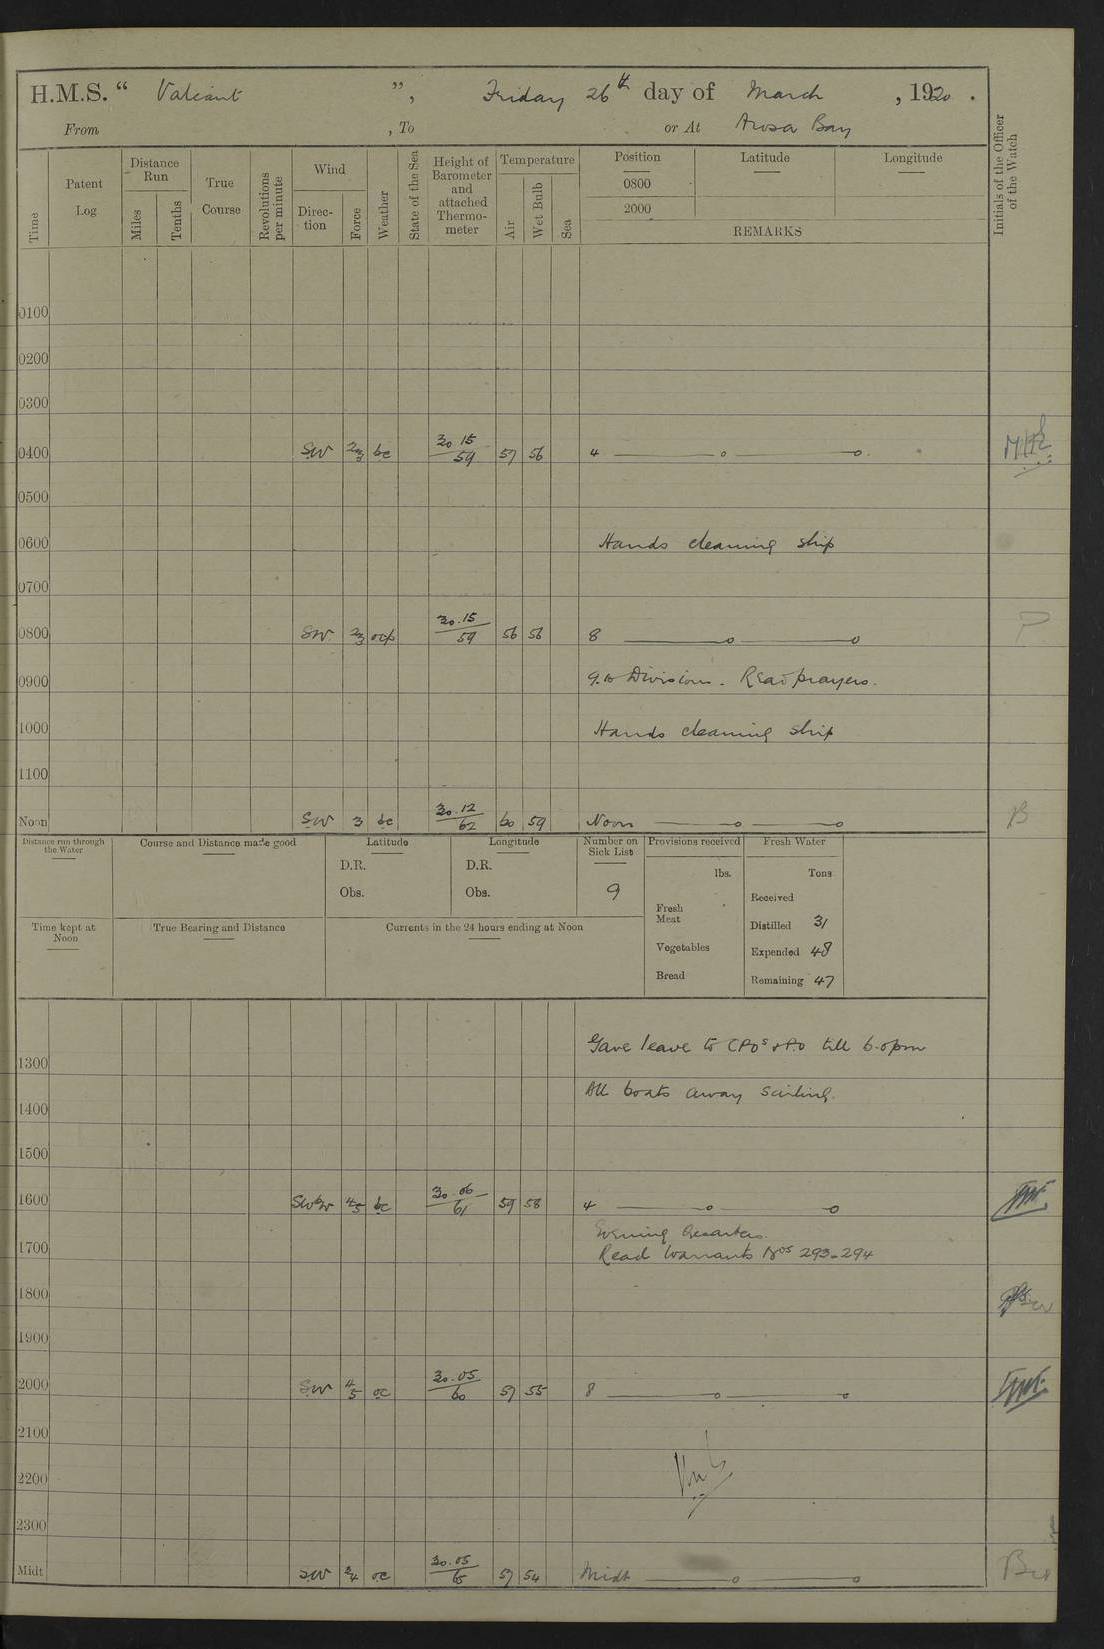 H.M.S. “ Valiant ”, Friday 26th day of March , 1920 .
From , To or At Arosa Bay
Time
Patent Log
Distance Run
Miles
Tenths
True Course
Revolutions per minute
Wind
Direction
Force
Weather
State of the Sea
Height of Barometer and attached Thermometer
Temperature
Air
Wet Bulb
Sea
Position
0800
2000
Latitude
Longitude
REMARKS
Initials of the Officer of the Watch
0100
0200
0300
0400 SW 2/3 bc 30.15/59 57 56 4
0500
0600 Hands cleaning ship
0700
0800 SW 2/3 ocp 30.15/59 56 56 8
0900 9.10 Divisions. Read prayers.
1000 Hands cleaning ship
1100
Noon SW 3 bc 30.12/62 60 59 Noon
Distance run through the Water
Course and Distance made good
Latitude
D.R.
Obs.
Longitude
D.R.
Obs.
Number on Sick List
9
Provisions received
lbs.
Fresh Meat
Vegetables
Bread
Fresh Water
Tons
Received
Distilled 31
Expended 48
Remaining 47
Time kept at Noon
True Bearing and Distance
Currents in the 24 hours ending at Noon
1300 Gave leave to CPOs & PO till 6.0pm
1400 All boats away sailing.
1500
1600 SWbW 4/5 bc 30.06/61 59 58 4
Evening Quarters.
1700 Read Warrants Nos 293-294
1800
1900
2000 SW 4/5 oc 30.05/60 57 55 8
2100
2200
2300
Midt SW 3/4 oc 30.05/ 57 54 Midt